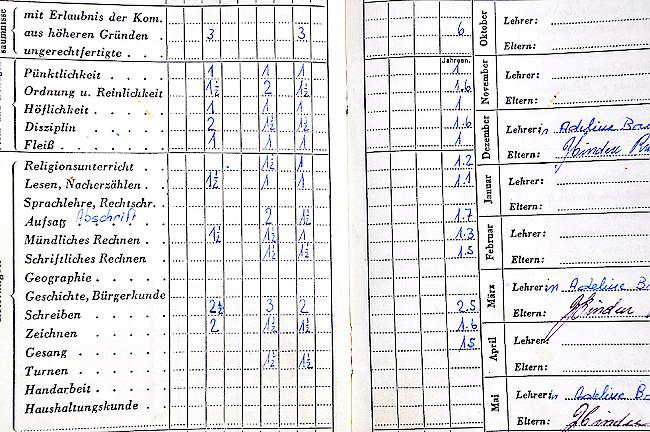 mit Erlaubnis der Kom.
aus höheren Gründen . 3 3 6
ungerechtfertigte . . .
Jahresn.
Pünktlichkeit . . . . 1 1 1 1
Ordnung u. Reinlichkeit 1½ 2 1½ 1.6
Höflichkeit . . . . . 1 1 1 1
Disziplin . . . . . 2 1½ 1½ 1.6
Fleiß . . . . . . 1 1 1 1
Religionsunterricht . . 1½ 1 1.2
Lesen, Nacherzählen . . 1½ 1 1 1.1
Sprachlehre, Rechtschr.
Aufsatz Abschrift . . 2 1½ 1.7
Mündliches Rechnen . . 1½ 1½ 1 1.3
Schriftliches Rechnen 1½ 1½ 1.5
Geographie . . . . .
Geschichte, Bürgerkunde
Schreiben . . . . . 2½ 3 2 2.5
Zeichnen . . . . . 2 1½ 1½ 1.6
Gesang . . . . . . 1.5
Turnen . . . . . . 1½ 1½
Handarbeit . . . . .
Haushaltungskunde . .
Oktober
Lehrer:
Eltern:
November
Lehrer:
Eltern:
Dezember
Lehrerin Adeline
Eltern: Hinden
Januar
Lehrer:
Eltern:
Februar
Lehrer:
Eltern:
März
Lehrerin Adeline
Eltern: Hinden
April
Lehrer:
Eltern:
Mai
Lehrerin Adeline
Eltern: Hinden